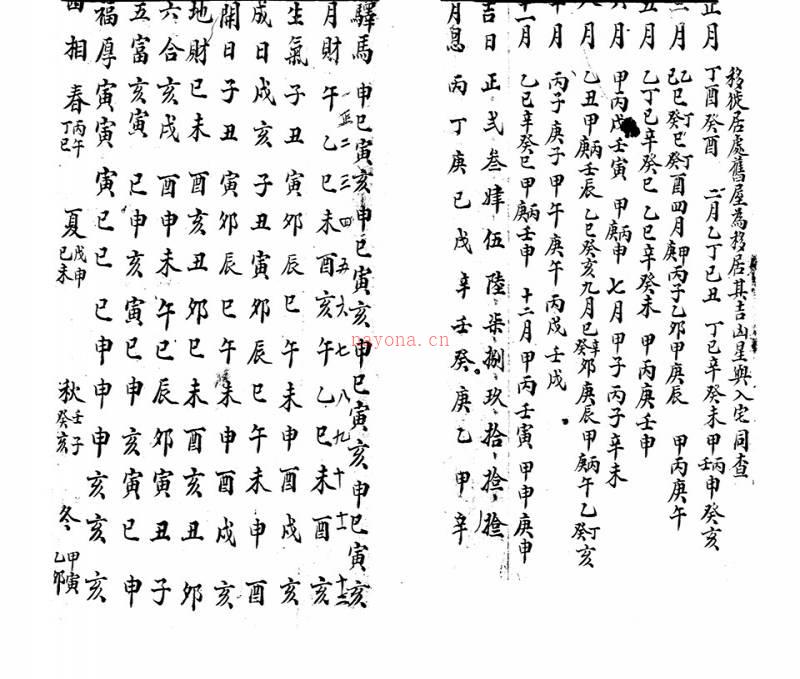 移徙居處舊屋為移居其吉凶星與入宅同查
正月 丁酉癸酉 二月乙丁巳丑 丁巳辛癸未甲丙壬申癸亥
乙巳癸巳丁癸丁酉四月甲庚丙子乙卯甲庚辰 甲丙庚午
五月 乙丁巳辛癸巳 乙巳辛癸未 甲丙庚壬申
甲丙戊壬寅 甲庚丙申 七月 甲子丙子辛未
八月 乙丑甲庚丙壬辰 乙巳癸亥九月巳癸辛卯庚辰甲庚丙午乙癸丁亥
十月 丙子庚子甲午庚午丙戌壬戌
十一月 乙巳辛癸巳甲庚丙壬申 十二月甲丙壬寅 甲申庚申
吉日 正 弍 叁 肆 伍 陸 柒 捌 玖 拾
月息 丙 丁 庚 巳 戊 辛 壬 癸 庚 乙 甲 辛
驛馬申巳寅亥申巳寅亥申巳寅亥
正二三四五六七八九十十一十二
月財午乙巳未酉亥午乙巳未酉亥
生氣子丑寅卯辰巳午未申酉戌亥
成日戌亥子丑寅卯辰巳午未申酉
開日子丑寅卯辰巳午未申酉戌亥
地財巳未酉亥丑卯巳未酉亥丑卯
六合亥戌酉申未午巳辰卯寅丑子
五富亥寅巳申亥寅巳申亥寅巳申
福厚寅寅寅巳巳巳申申申亥亥亥
四相 春丙午丁巳 夏戊申己未 秋壬子癸亥 冬甲寅乙卯
nayona.cn